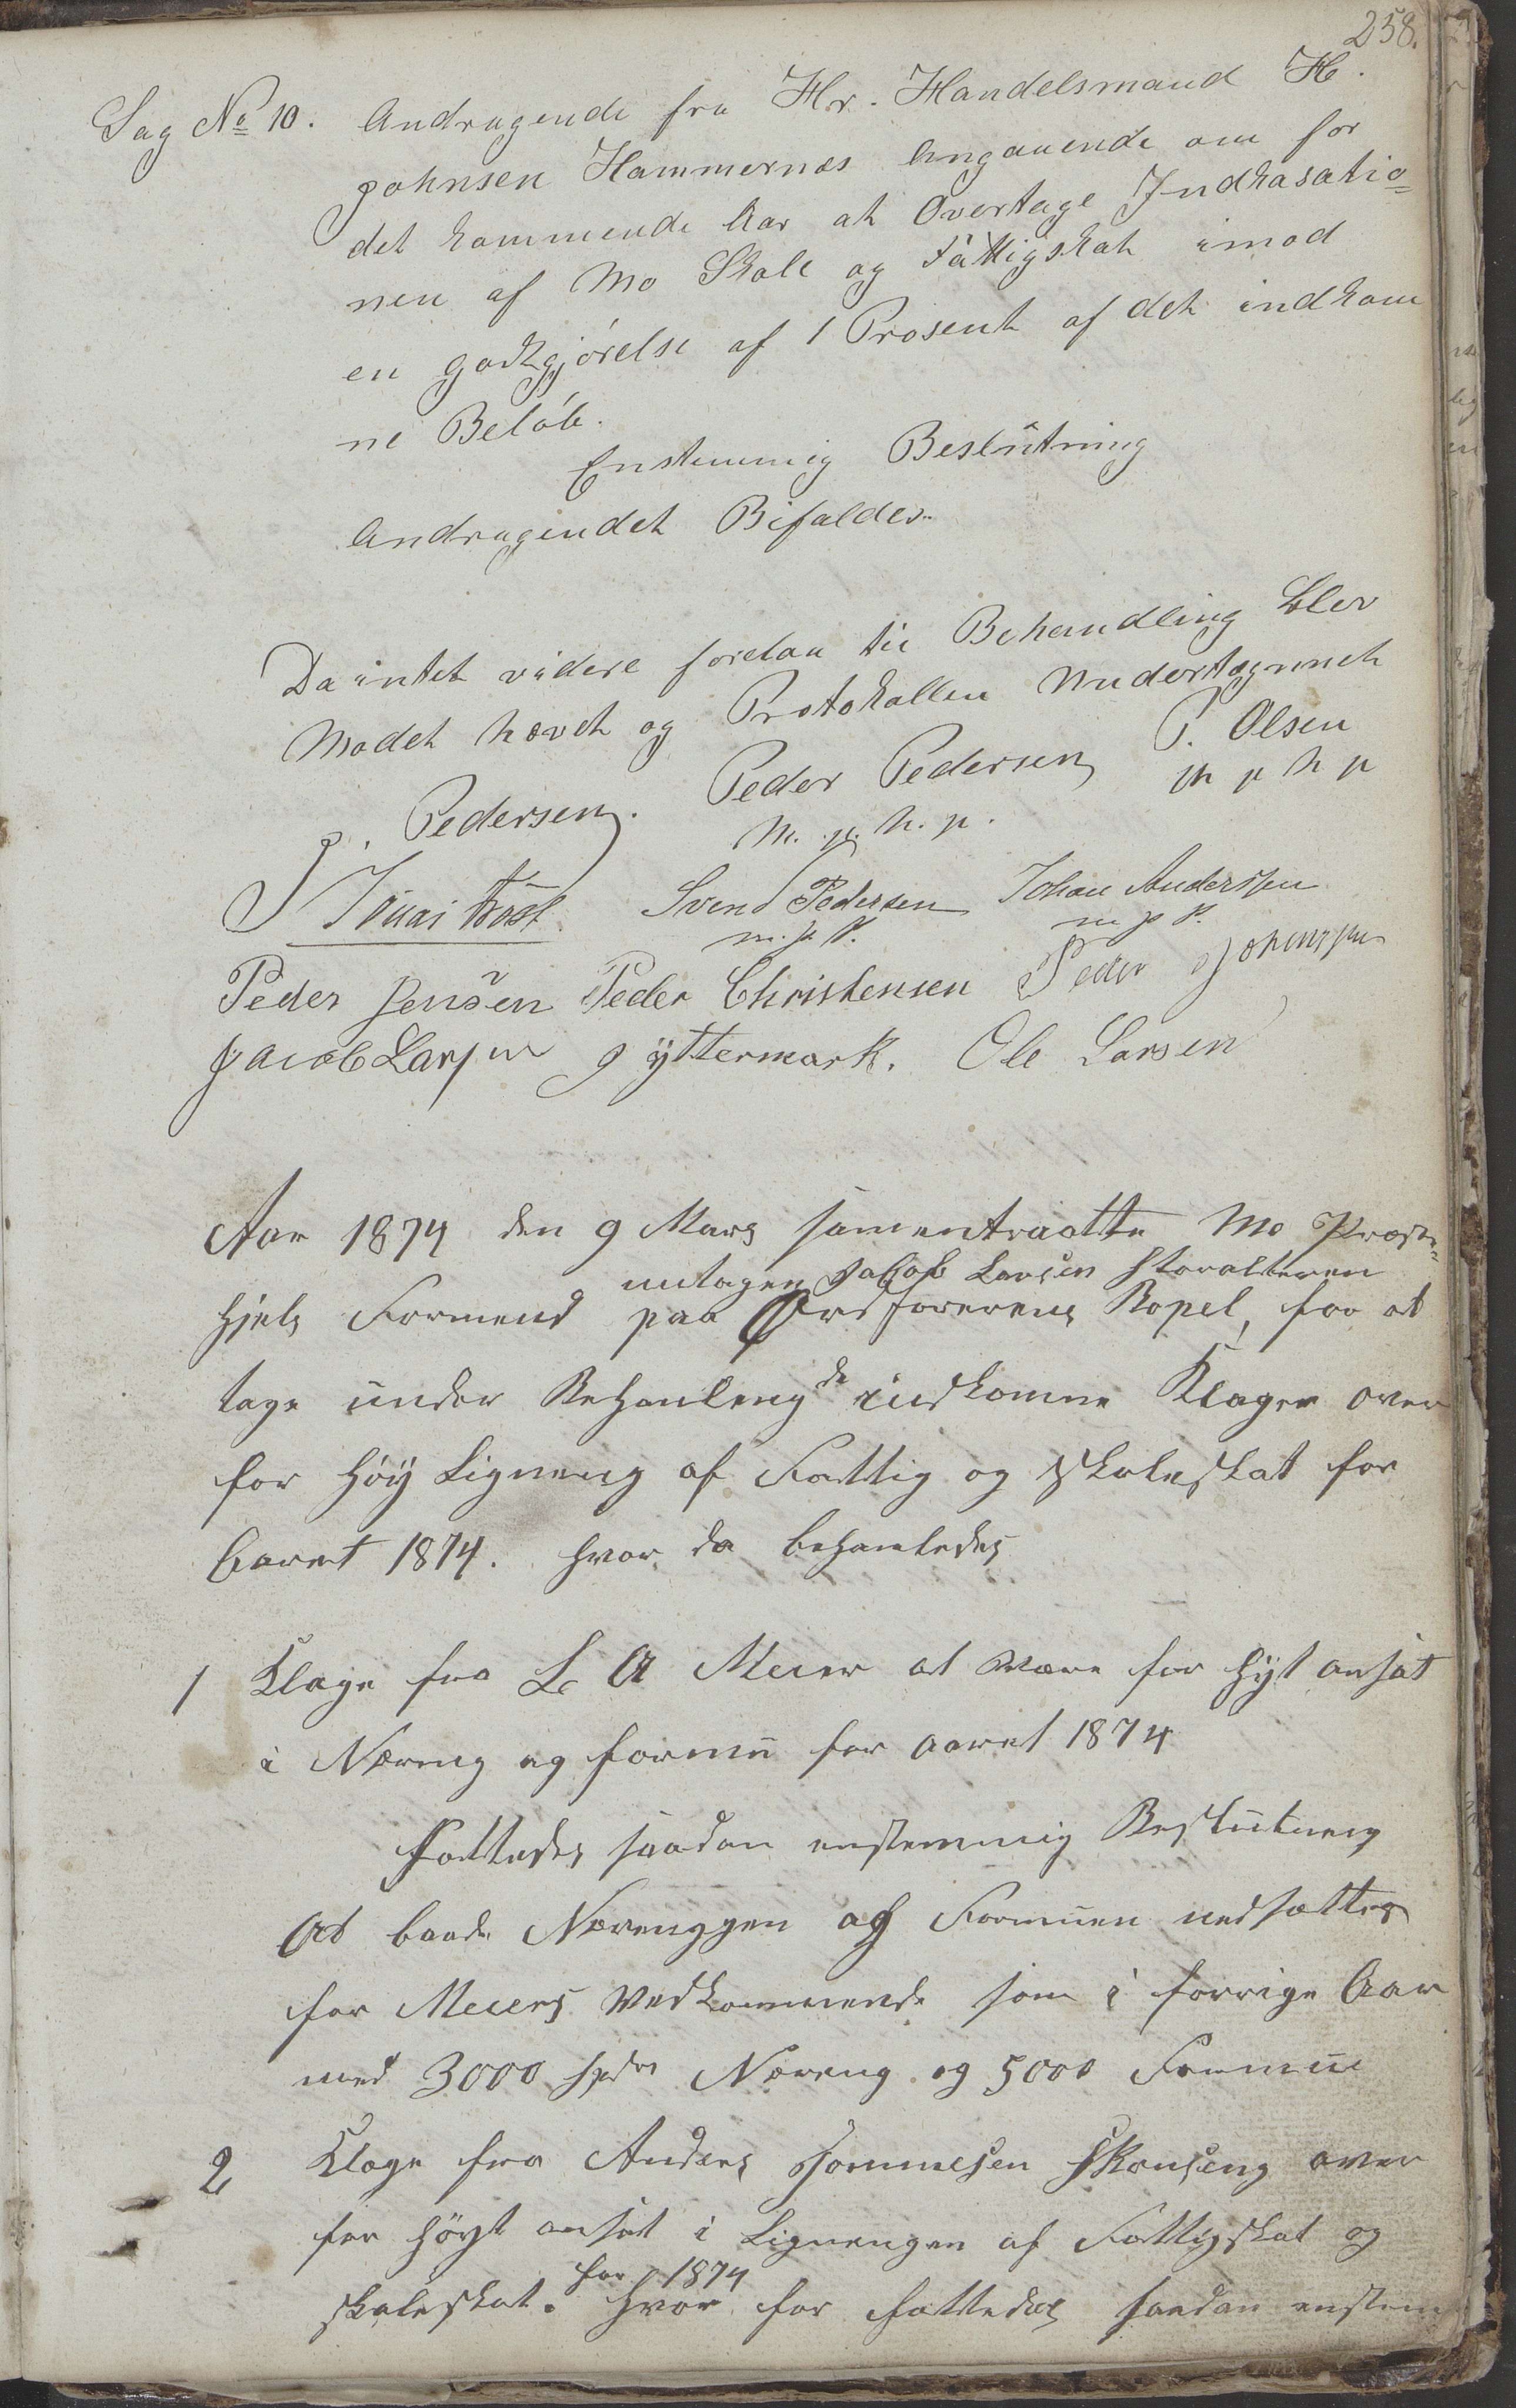 258.
Sag No 10. Andragende fra Hr. Handelsmand H.
Johnsen Hammernæs Angaaende om for
det kommende Aar at Overtage Indkasatio=
nen af Mo Skole og Fattigskat imod
en godtgjörelse af 1 Prosent af det indkom
ne Belöb.
Enstemmig Beslutning
Andragendet Bifaldes.
Da intet videre forelaa til Behandling blev
Modet hævet og Protokollen Undertegnnet
J. Pedersen. Peder Pedersen P. Olsen
m. p. h. p. m p h p
Svend Pedersen Johan Anderssen
m. p. P. m p P.
Peder Jensen Peder Christensen Peder Johanssen
Jacob Larsen J yttermark. Ole Larsen
Aar 1874 den 9 Mars samentraatte Mo Præste=
untagen Jakob Larsen Storalteren
Hjels Formend paa Ordforerens Bopel, for at
tage under Behanleng de indkomne Klager over
for höÿ Ligneng af Fattig og Skoleskat for
Aaret 1874. hvor da behanledes
1 Klage fra L A Meier at være for hÿt ansat
i Næreng og formu for aaret 1874
Fattedes saadan enstemmig Beslutneng
At baade Nærenggen og Formuen nedsættes
for Meiers Vedkommende som i forrige Aar
med 3000 spdr Næreng og 5000 Formue
2 Klage fra Anders Tommesen Skonseng over
for höyt ansat i Ligningen af Fattigskat og
for 1874
skoleskat. hvor for fattedes saadan enstem